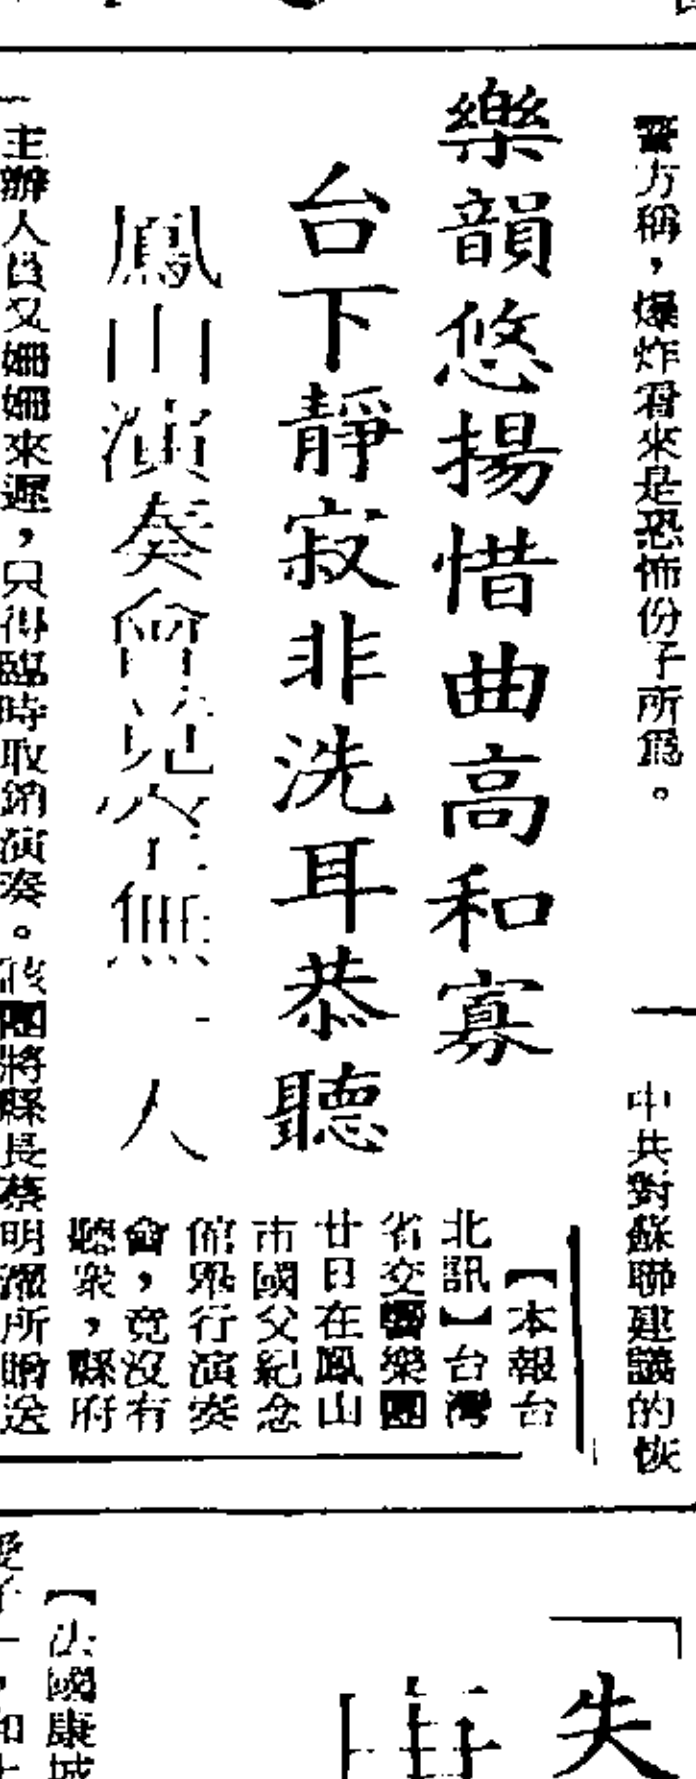 警方稱，爆炸看來是恐怖份子所爲。
中共對蘇聯建議的恢
樂韻悠揚惜曲高和寡
台下靜寂非洗耳恭聽
鳳山演奏會竟空無一人
【本報台
北訊】台灣
省交響樂團
廿日在鳳山
市國父紀念
館舉行演奏
會，竟沒有
聽衆，縣府
主辦人員又姍姍來遲，只得臨時取銷演奏。該團將縣長蔡明耀所贈送
失
【法國康城